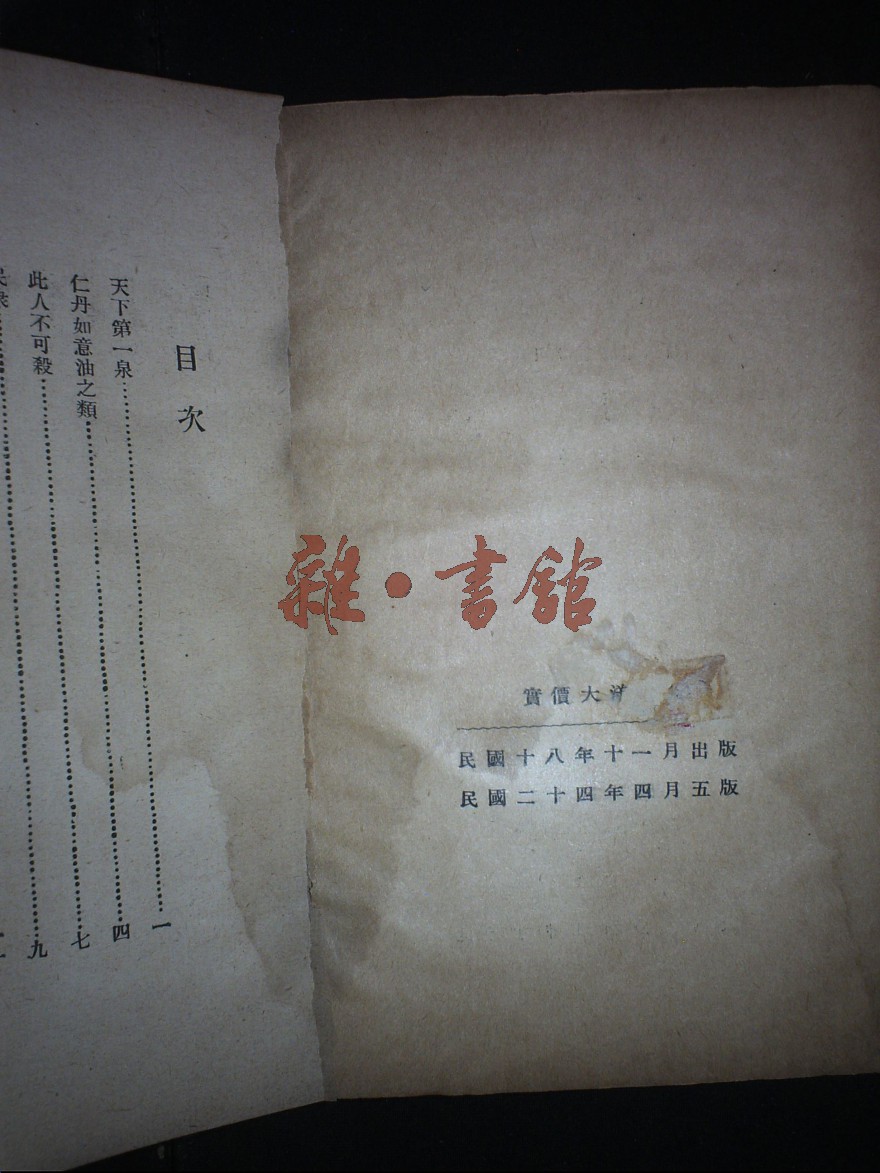 實價大洋
民國十八年十一月出版
民國二十四年四月五版
目次
天下第一泉……一
仁丹如意油之類……四
此人不可殺……七
……九
雜·書館